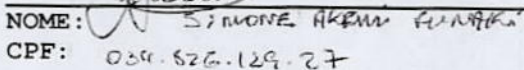 NOME: SIMONE AKEMI FUNAKI
CPF: 034.526.129.27